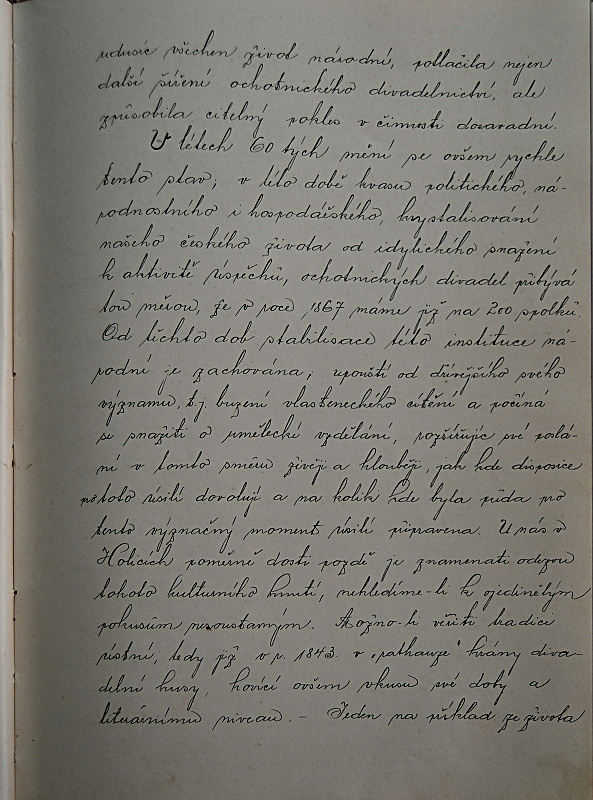 udusic všechen život národní, potlačila nejen
další šíření ochotnického divadelnictví, ale
způsobila citelný pokles v činnosti dosavadní.
V létech 60 tých mění se ovšem rychle
tento stav; v této době kvasu politického, ná-
rodnostního i hospodářského, krystalisování
našeho českého života od idylického snažení
k aktivitě úspěchů, ochotnických divadel přibývá
tou měrou, že v roce 1867 máme již na 200 spolků.
Od těchto dob stabilisace této instituce ná-
rodní je zachována; upouští od dřívějšího svého
významu, t.j. buzení vlasteneckého cítění a počíná
se snažiti o umělecké vzdělání, rozšiřujíc své poslá-
ní v tomto směru živěji a hlouběji, jak kde disposice
pro toto úsilí dovolují a na kolik kde byla půda pro
tento význačný moment úsilí připravena. U nás v
Holicích poměrně dosti pozdě je znamenati odezvu
tohoto kulturního hnutí, nehledíme-li k ojedinělým
pokusům nesoustavným. Možno-li věřiti tradici
ústní, tedy již v r. 1843. v „rathauze" hrány diva-
delní kusy, hovící ovšem vkusu své doby a
literárnímu niveau. – Jeden na příklad ze života